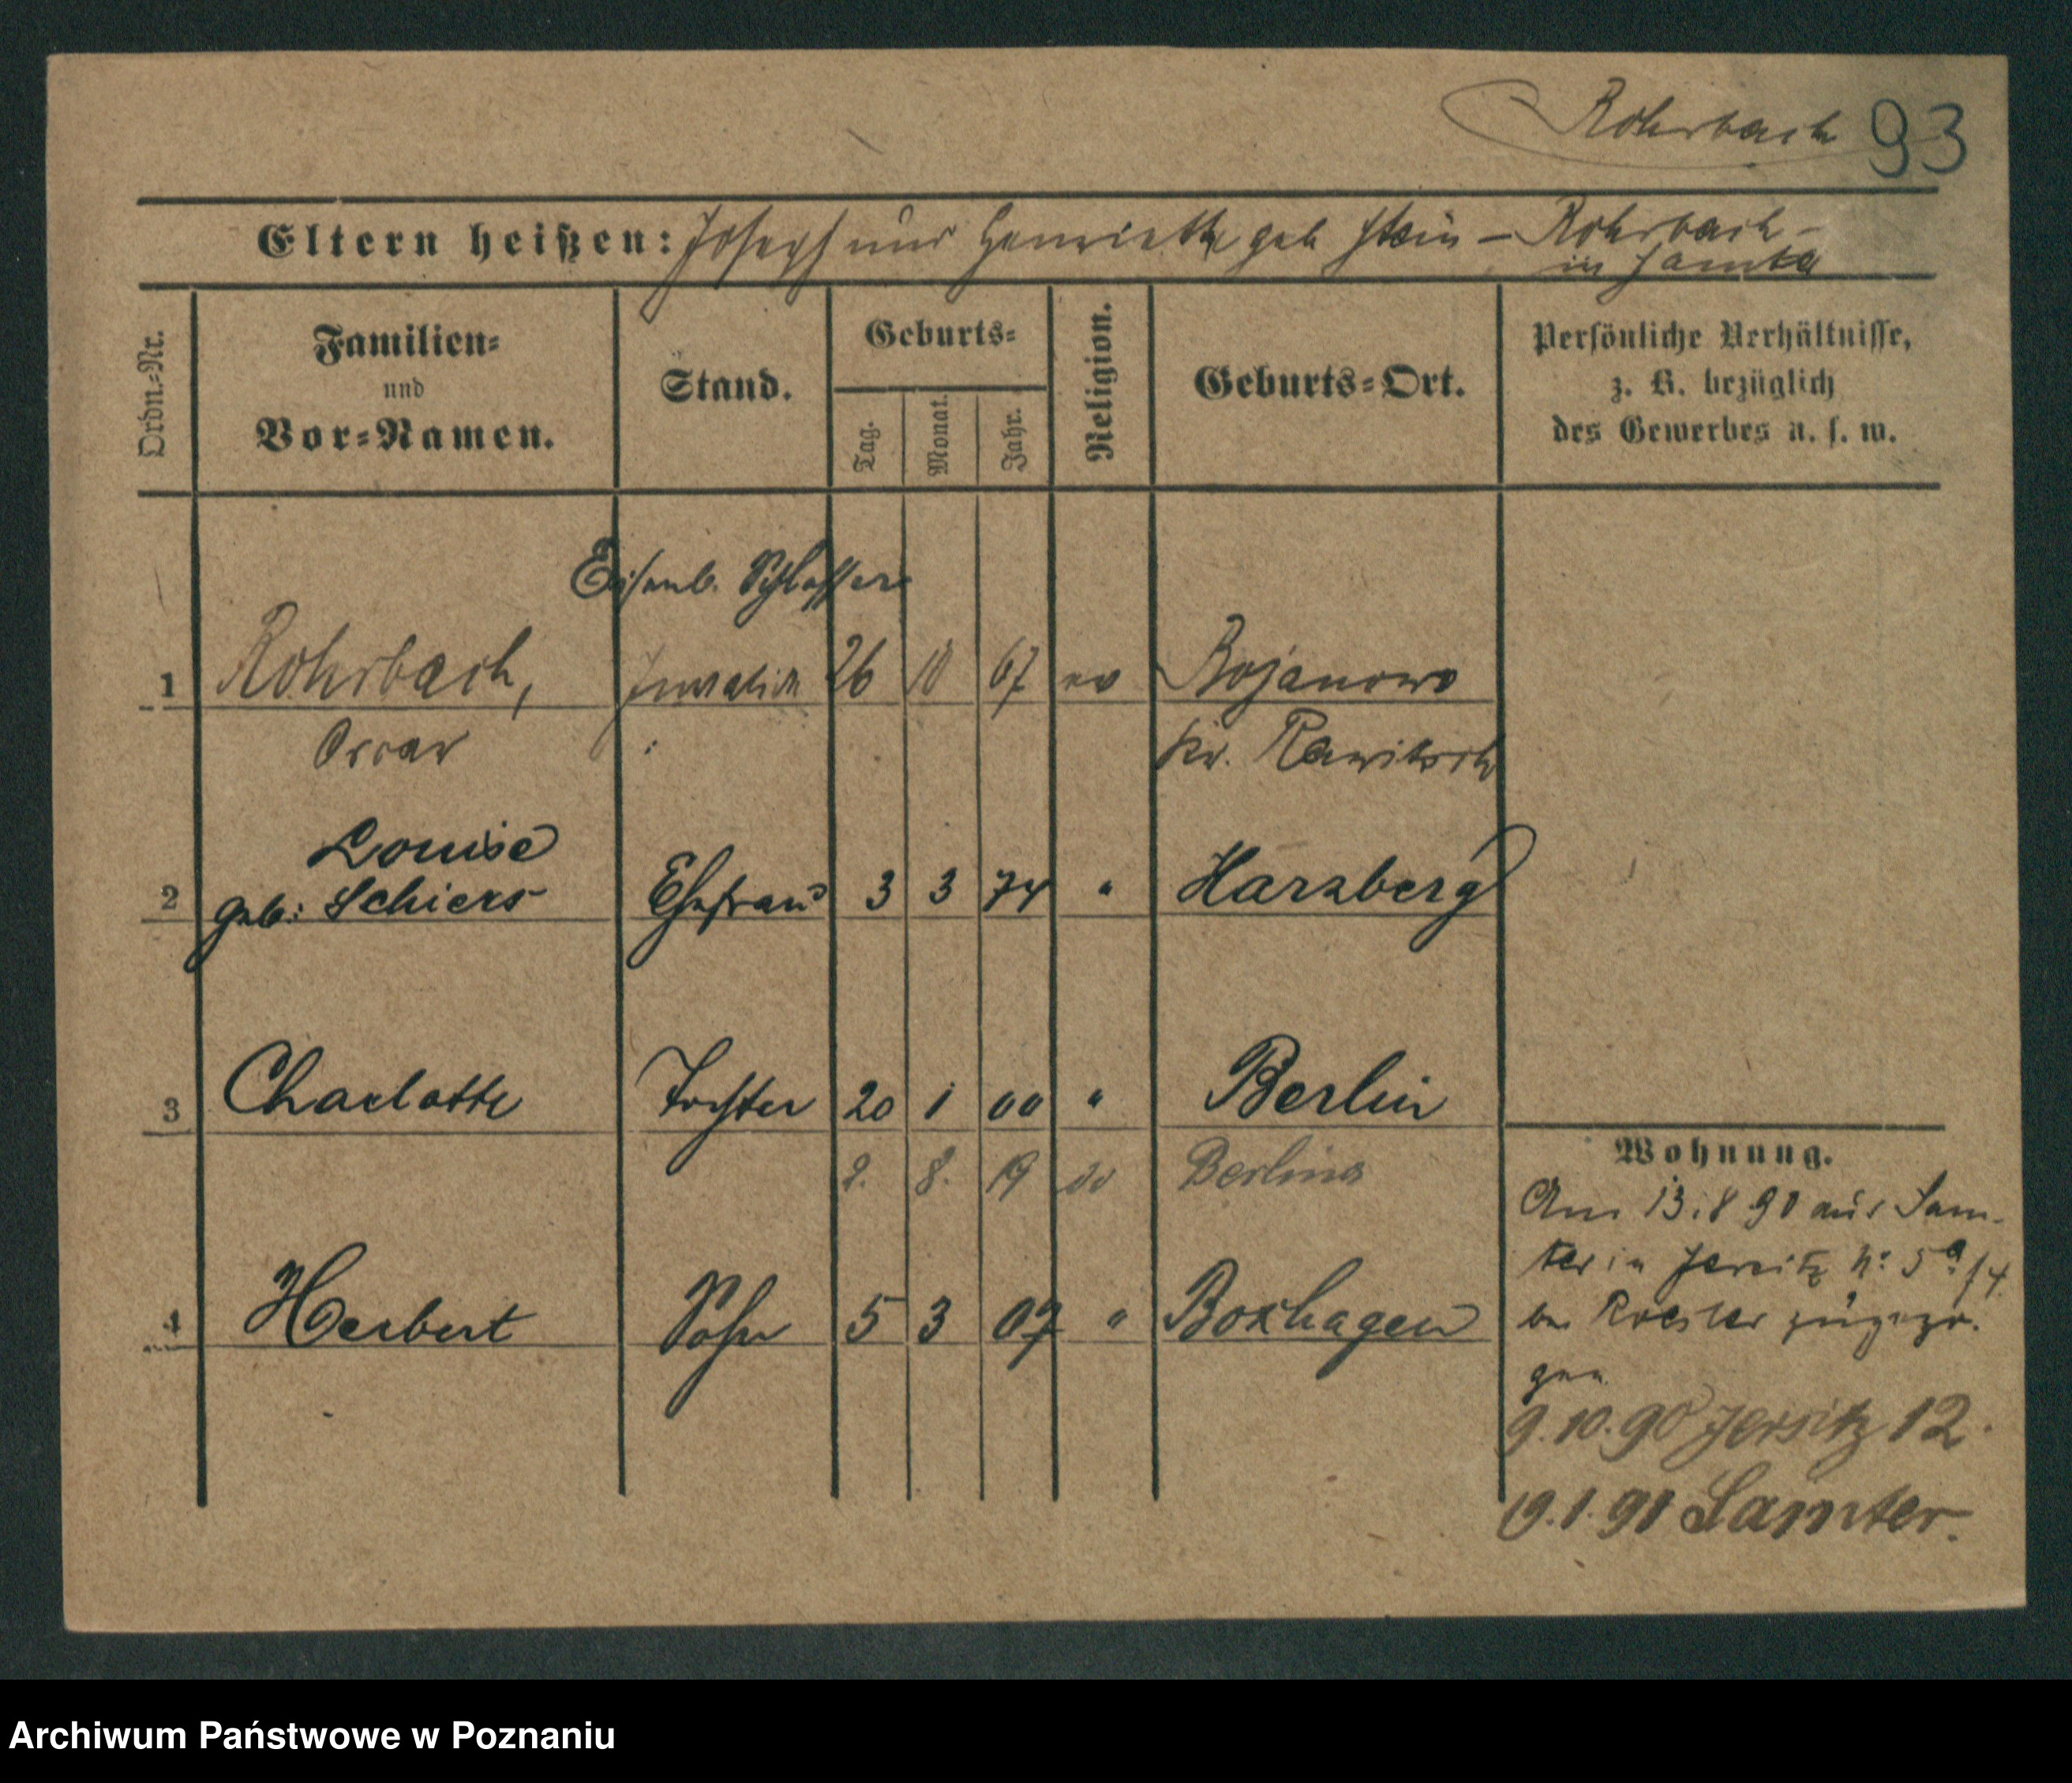 Rohrbach 93
Eltern heißen: Joseph und Henriette geb Stein – Rohrbach –
in Samter
Ordn.-Nr.
Familien-
und
Vor-Namen.
Stand.
Geburts-
Tag.
Monat.
Jahr.
Religion.
Geburts-Ort.
Persönliche Verhältnisse,
z. B. bezüglich
des Gewerbes u. s. w.
Eisenb. Schlosser
1 Rohrbach, 26 10 67 ev Bojanowo
Oscar Kr. Rawitsch
Louise
2 geb: Schiers Ehefrau 3 3 74 " Harzberg
3 Charlotte Tochter 20 1 00 " Berlin
2. 8. 19 Berlin
4 Herbert Sohn 5 3 07 " Boxhagen
Wohnung.
Am 13.8 90 aus Sam-
ter in Jersitz N: 5a
bei Roesler zugezo-
gen
9.10.90 Jersitz 12.
19.1.91 Samter.
Archiwum Państwowe w Poznaniu